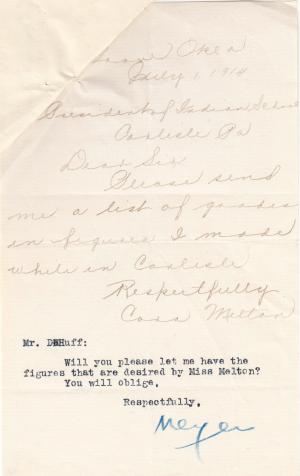 Okla
July 1, 1914
President of Indian School
Carlisle Pa
Dear Sir
Please send
me a list of grades
in figures I made
while in Carlisle
Respectfully
Cora Melton
Mr. DeHuff:
Will you please let me have the
figures that are desired by Miss Melton?
You will oblige,
Respectfully,
Meyer